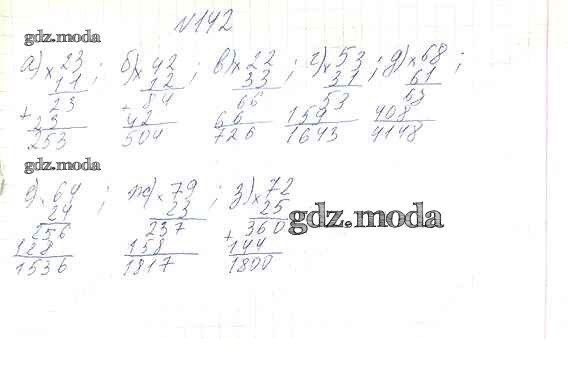 №142
gdz.moda
а) × 23 ; б) × 42 ; в) × 22 ; г) × 53 ; д) × 68 ;
11 12 33 31 61
23 84 66 53 63
+ 23 42 66 159 408
253 504 726 1643 4148
gdz.moda
е) × 64 ; ж) × 79 ; з) × 72
24 23 25
256 237 360
128 158 + 144
1536 1817 1800
gdz.moda